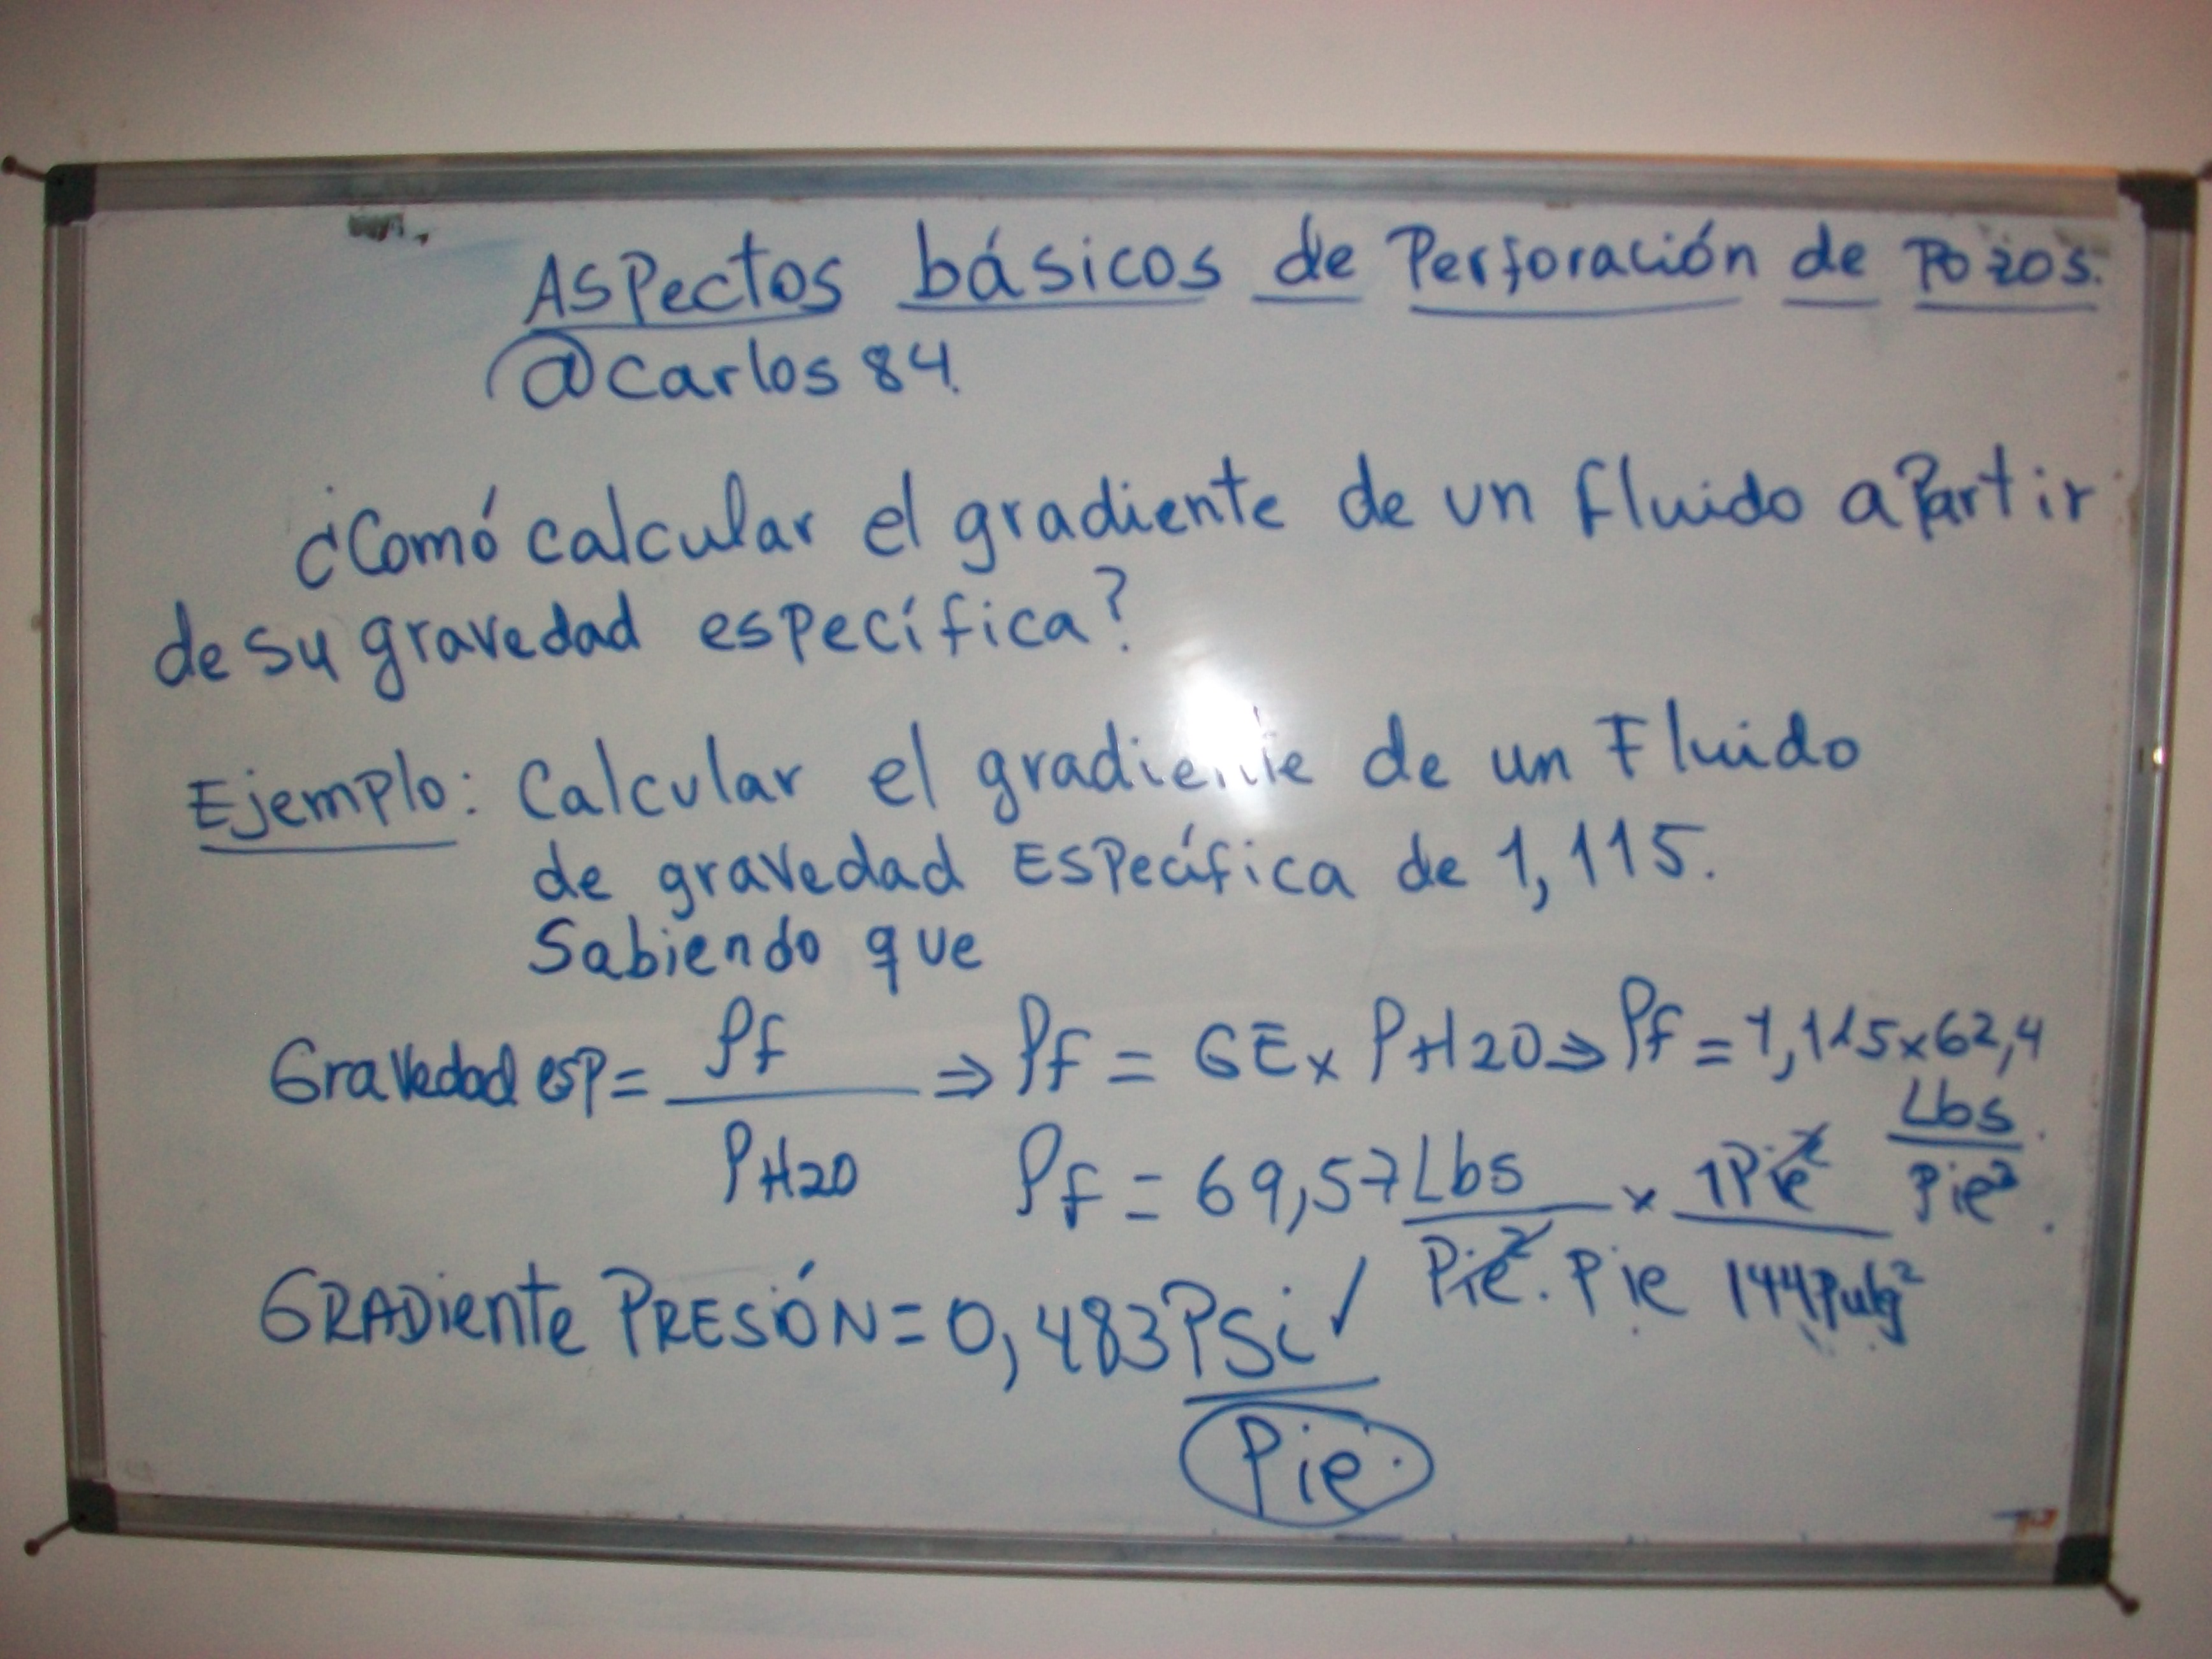 Aspectos básicos de Perforación de Pozos.
@carlos84.
¿Comó calcular el gradiente de un fluido a Partir
de su gravedad específica?
Ejemplo: Calcular el gradiente de un Fluido
de gravedad Específica de 1,115.
Sabiendo que
Gravedad esp = ρf / ρH2O ⇒ ρf = GE x ρH2O ⇒ ρf = 1,115 x 62,4 Lbs / Pie³.
ρf = 69,57 Lbs / Pie². Pie x 1Pie² / 144 Pulg²
GRADiente PRESIÓN = 0,483 PSi / Pie. ✓